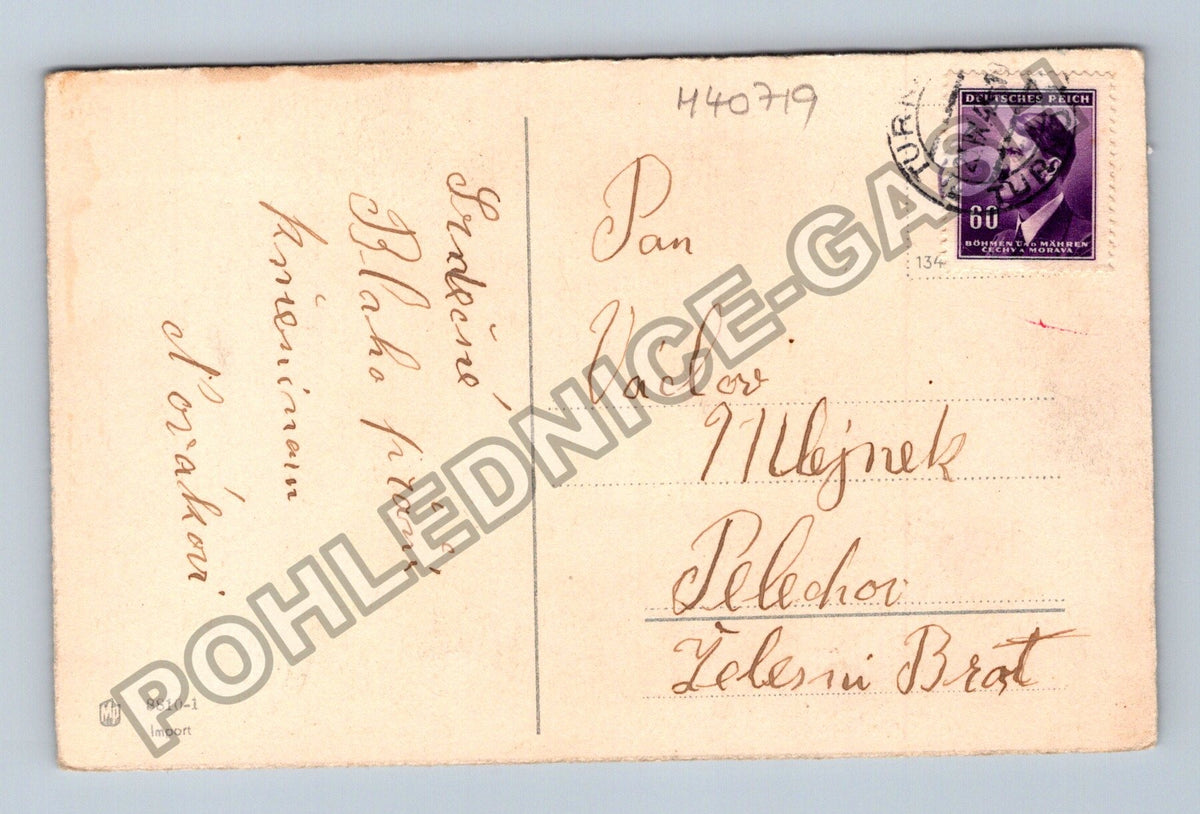 440719
DEUTSCHES REICH
60
BÖHMEN UND MÄHREN
ČECHY A MORAVA
134
TUR
Srdečné
Blaho přání
Novákovi
Pan
Václav
Mlejnek
Pelechov
Železni Brot
8810-1
Import
POHLEDNICE-GASH